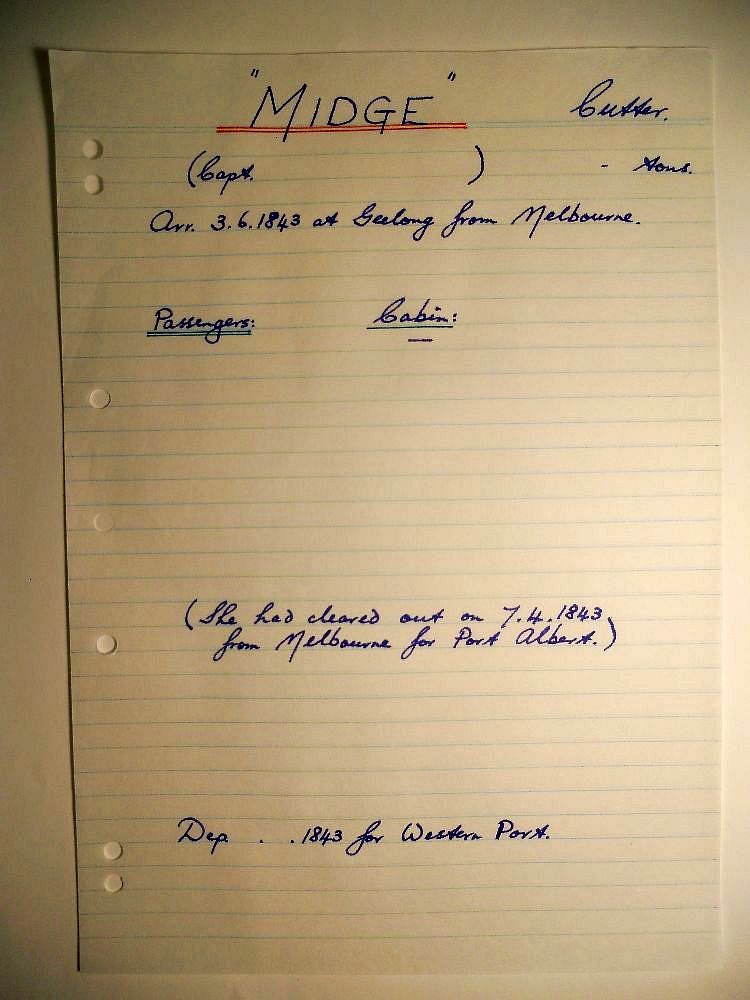 "MIDGE" Cutter.
(Capt. ) - tons.
Arr. 3.6.1843 at Geelong from Melbourne.
Passengers: Cabin:
—
(She had cleared out on 7.4.1843
from Melbourne for Port Albert.)
Dep. . . 1843 for Western Port.